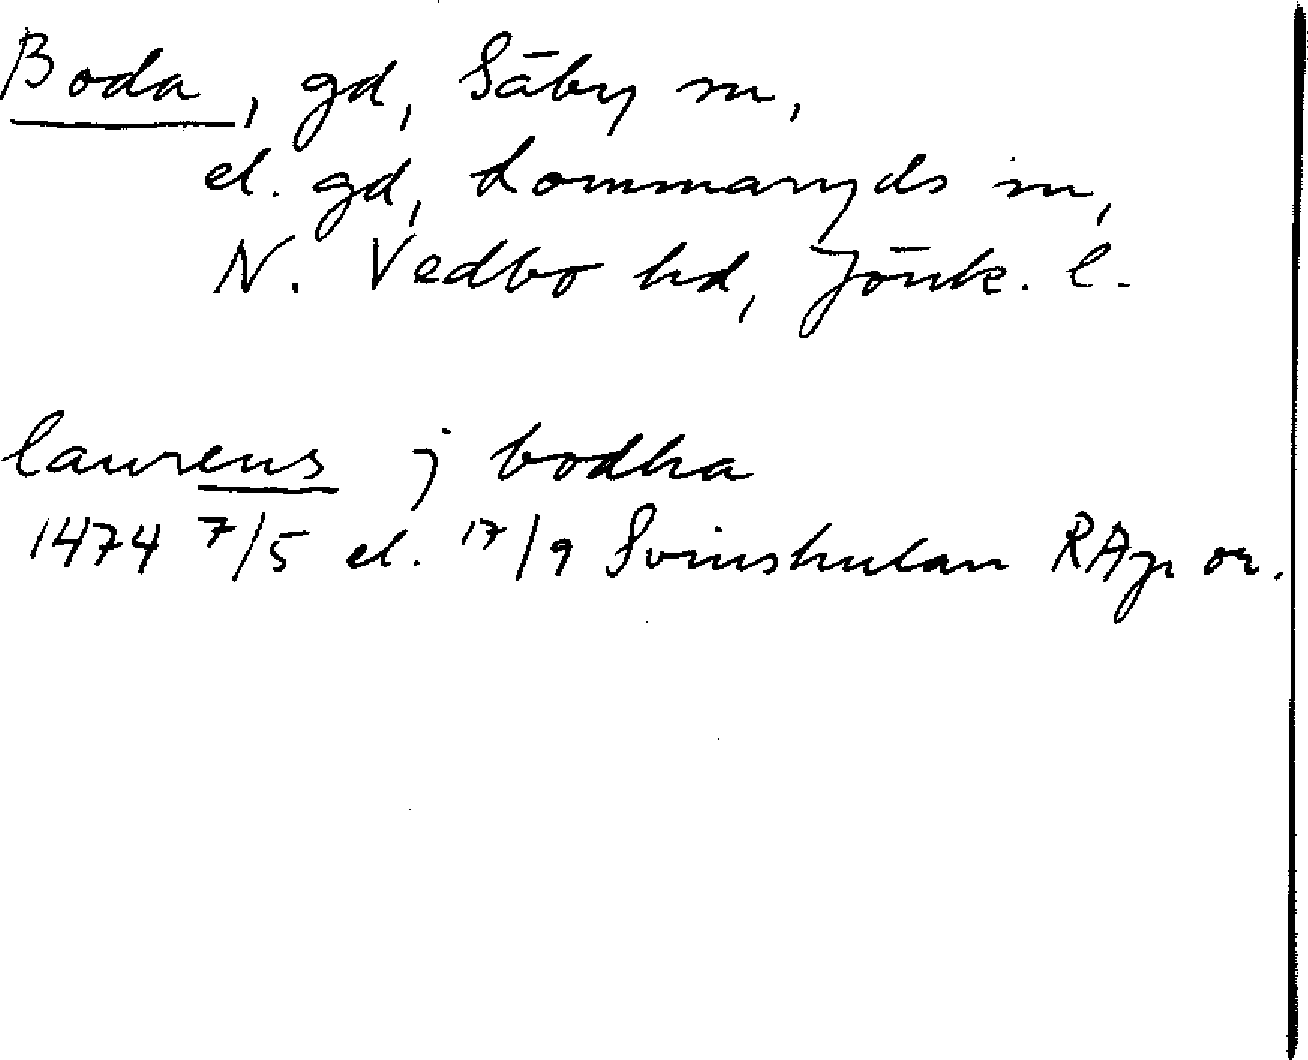 Boda, gd, Säby sn,
el. gd, Lommaryds sn,
N. Vedbo hd, Jönk. l.
laurens j bodha
1474 7/5 el. 17/9 Svinshulan RAp or.